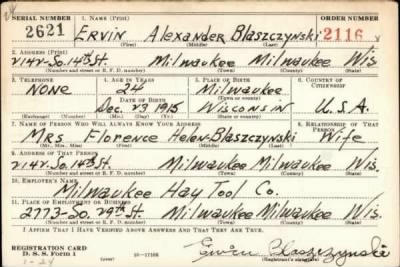 SERIAL NUMBER 1. NAME (Print) ORDER NUMBER
2621 ERVIN Alexander Blaszczynski 2116 V
(First) (Middle) (Last)
2. ADDRESS (Print)
2142-So. 14th St. Milwaukee Milwaukee Wis
(Number and street or R. F. D. number) (Town) (County) (State)
3. TELEPHONE 4. AGE IN YEARS 5. PLACE OF BIRTH 6. COUNTRY OF CITIZENSHIP
NONE 24 Milwaukee
DATE OF BIRTH (Town or county)
Dec. 29 1915 Wisconsin U.S.A.
(Exchange) (Number) (Mo.) (Day) (Yr.) (State or country)
7. NAME OF PERSON WHO WILL ALWAYS KNOW YOUR ADDRESS 8. RELATIONSHIP OF THAT PERSON
Mrs Florence Helen-Blaszczynski Wife
(Mr., Mrs., Miss) (First) (Middle) (Last)
9. ADDRESS OF THAT PERSON
2142-So. 14th St. Milwaukee Milwaukee Wis.
(Number and street or R. F. D. number) (Town) (County) (State)
10. EMPLOYER'S NAME
Milwaukee Hay Tool Co.
11. PLACE OF EMPLOYMENT OR BUSINESS
2773-So. 29th St. Milwaukee Milwaukee Wis.
(Number and street or R. F. D. number) (Town) (County) (State)
I AFFIRM THAT I HAVE VERIFIED ABOVE ANSWERS AND THAT THEY ARE TRUE.
REGISTRATION CARD
D. S. S. Form 1 Ervin Blaszczynski
(Registrant's signature)